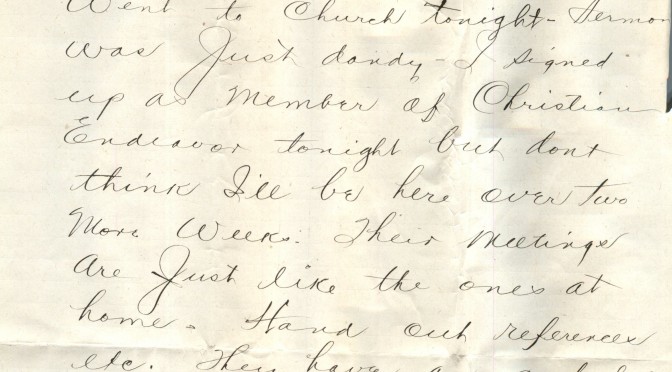 Went to Church tonight - Sermon
was Just dandy - I signed
up as Member of Christian
Endeavor tonight but dont
think I'll be here over two
More Weeks. Their Meetings
are Just like the ones at
home. Hand out references
etc. They have a